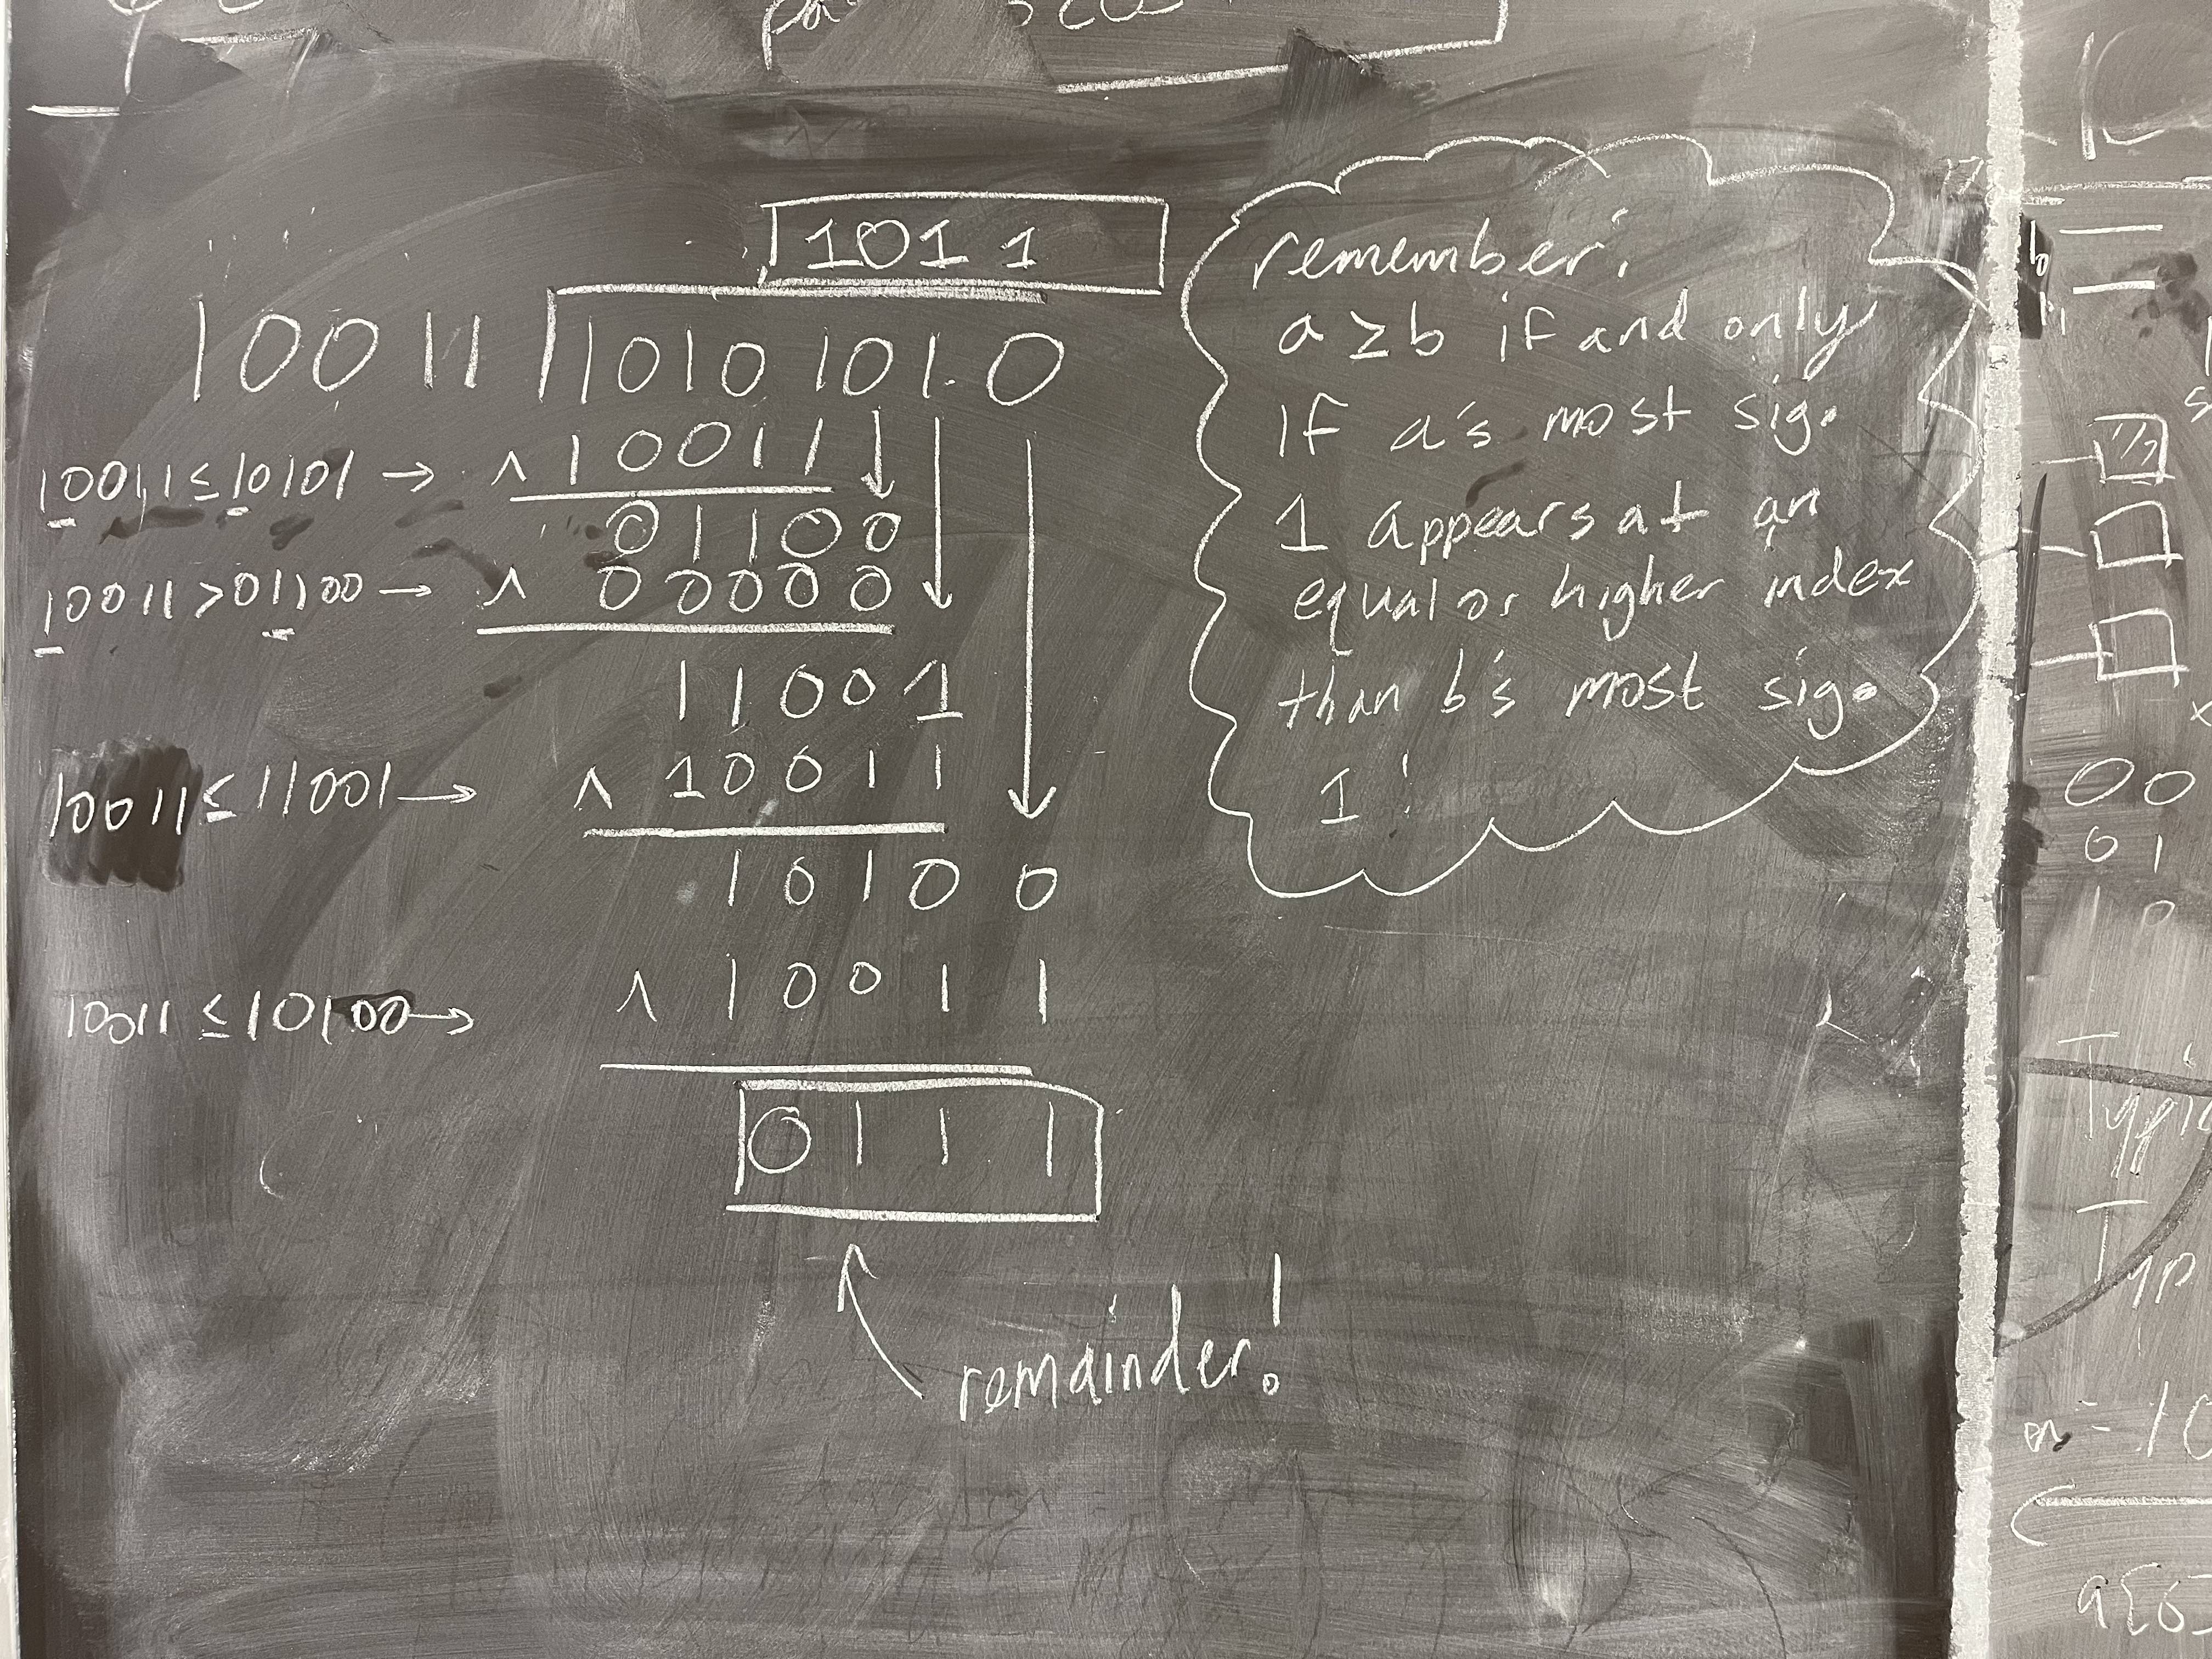 1011
10011 10101010
10011 ≤ 10101 → ∧ 10011
01100
10011 > 01100 → ∧ 00000
11001
10011 ≤ 11001 → ∧ 10011
10100
10011 ≤ 10100 → ∧ 10011
0111
remainder!
remember:
a ≥ b if and only
if a's most sig.
1 appears at an
equal or higher index
than b's most sig.
1!
00
01
10
Typ